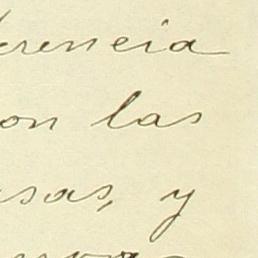 erencia
on las
esas, y